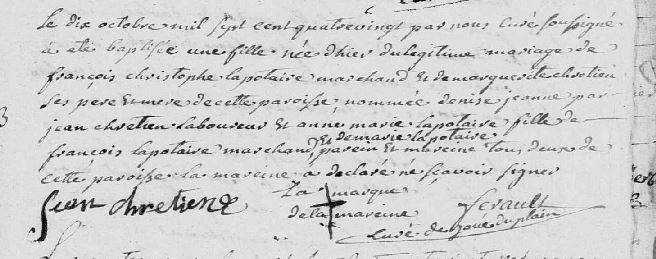 Le dix octobre mil sept cent quatrevingt par nous curé soussigné
a été baptisée une fille née dhier du legitime mariage de
françois christophe lapotaire marchand et de marguerite chretien
ses pere et mere de cette paroisse nommée denise jeanne par
jean chretien laboureur et anne marie lapotaire fille de
françois lapotaire marchand et de marie lapotaire parein et mareine tous deux de
cette paroisse la mareine a declaré ne sçavoir signer
jean chretien
La marque
de la mareine
ferault
curé de joué du plain